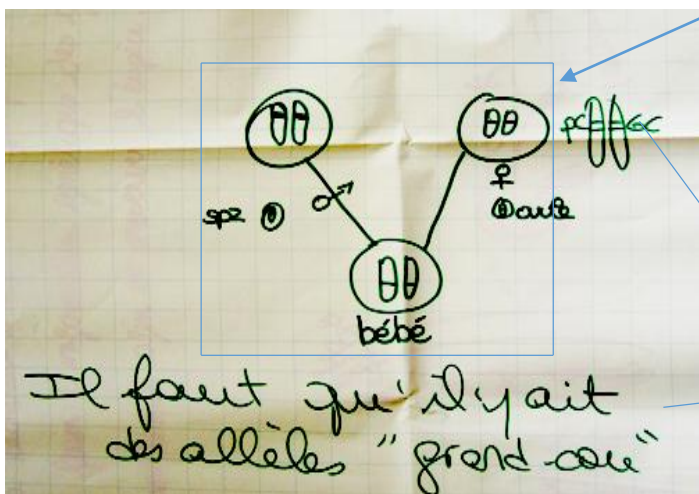 pC GC
♀
spz ♂ ovule
bébé
Il faut qu'il y ait
des allèles "grand-cou"